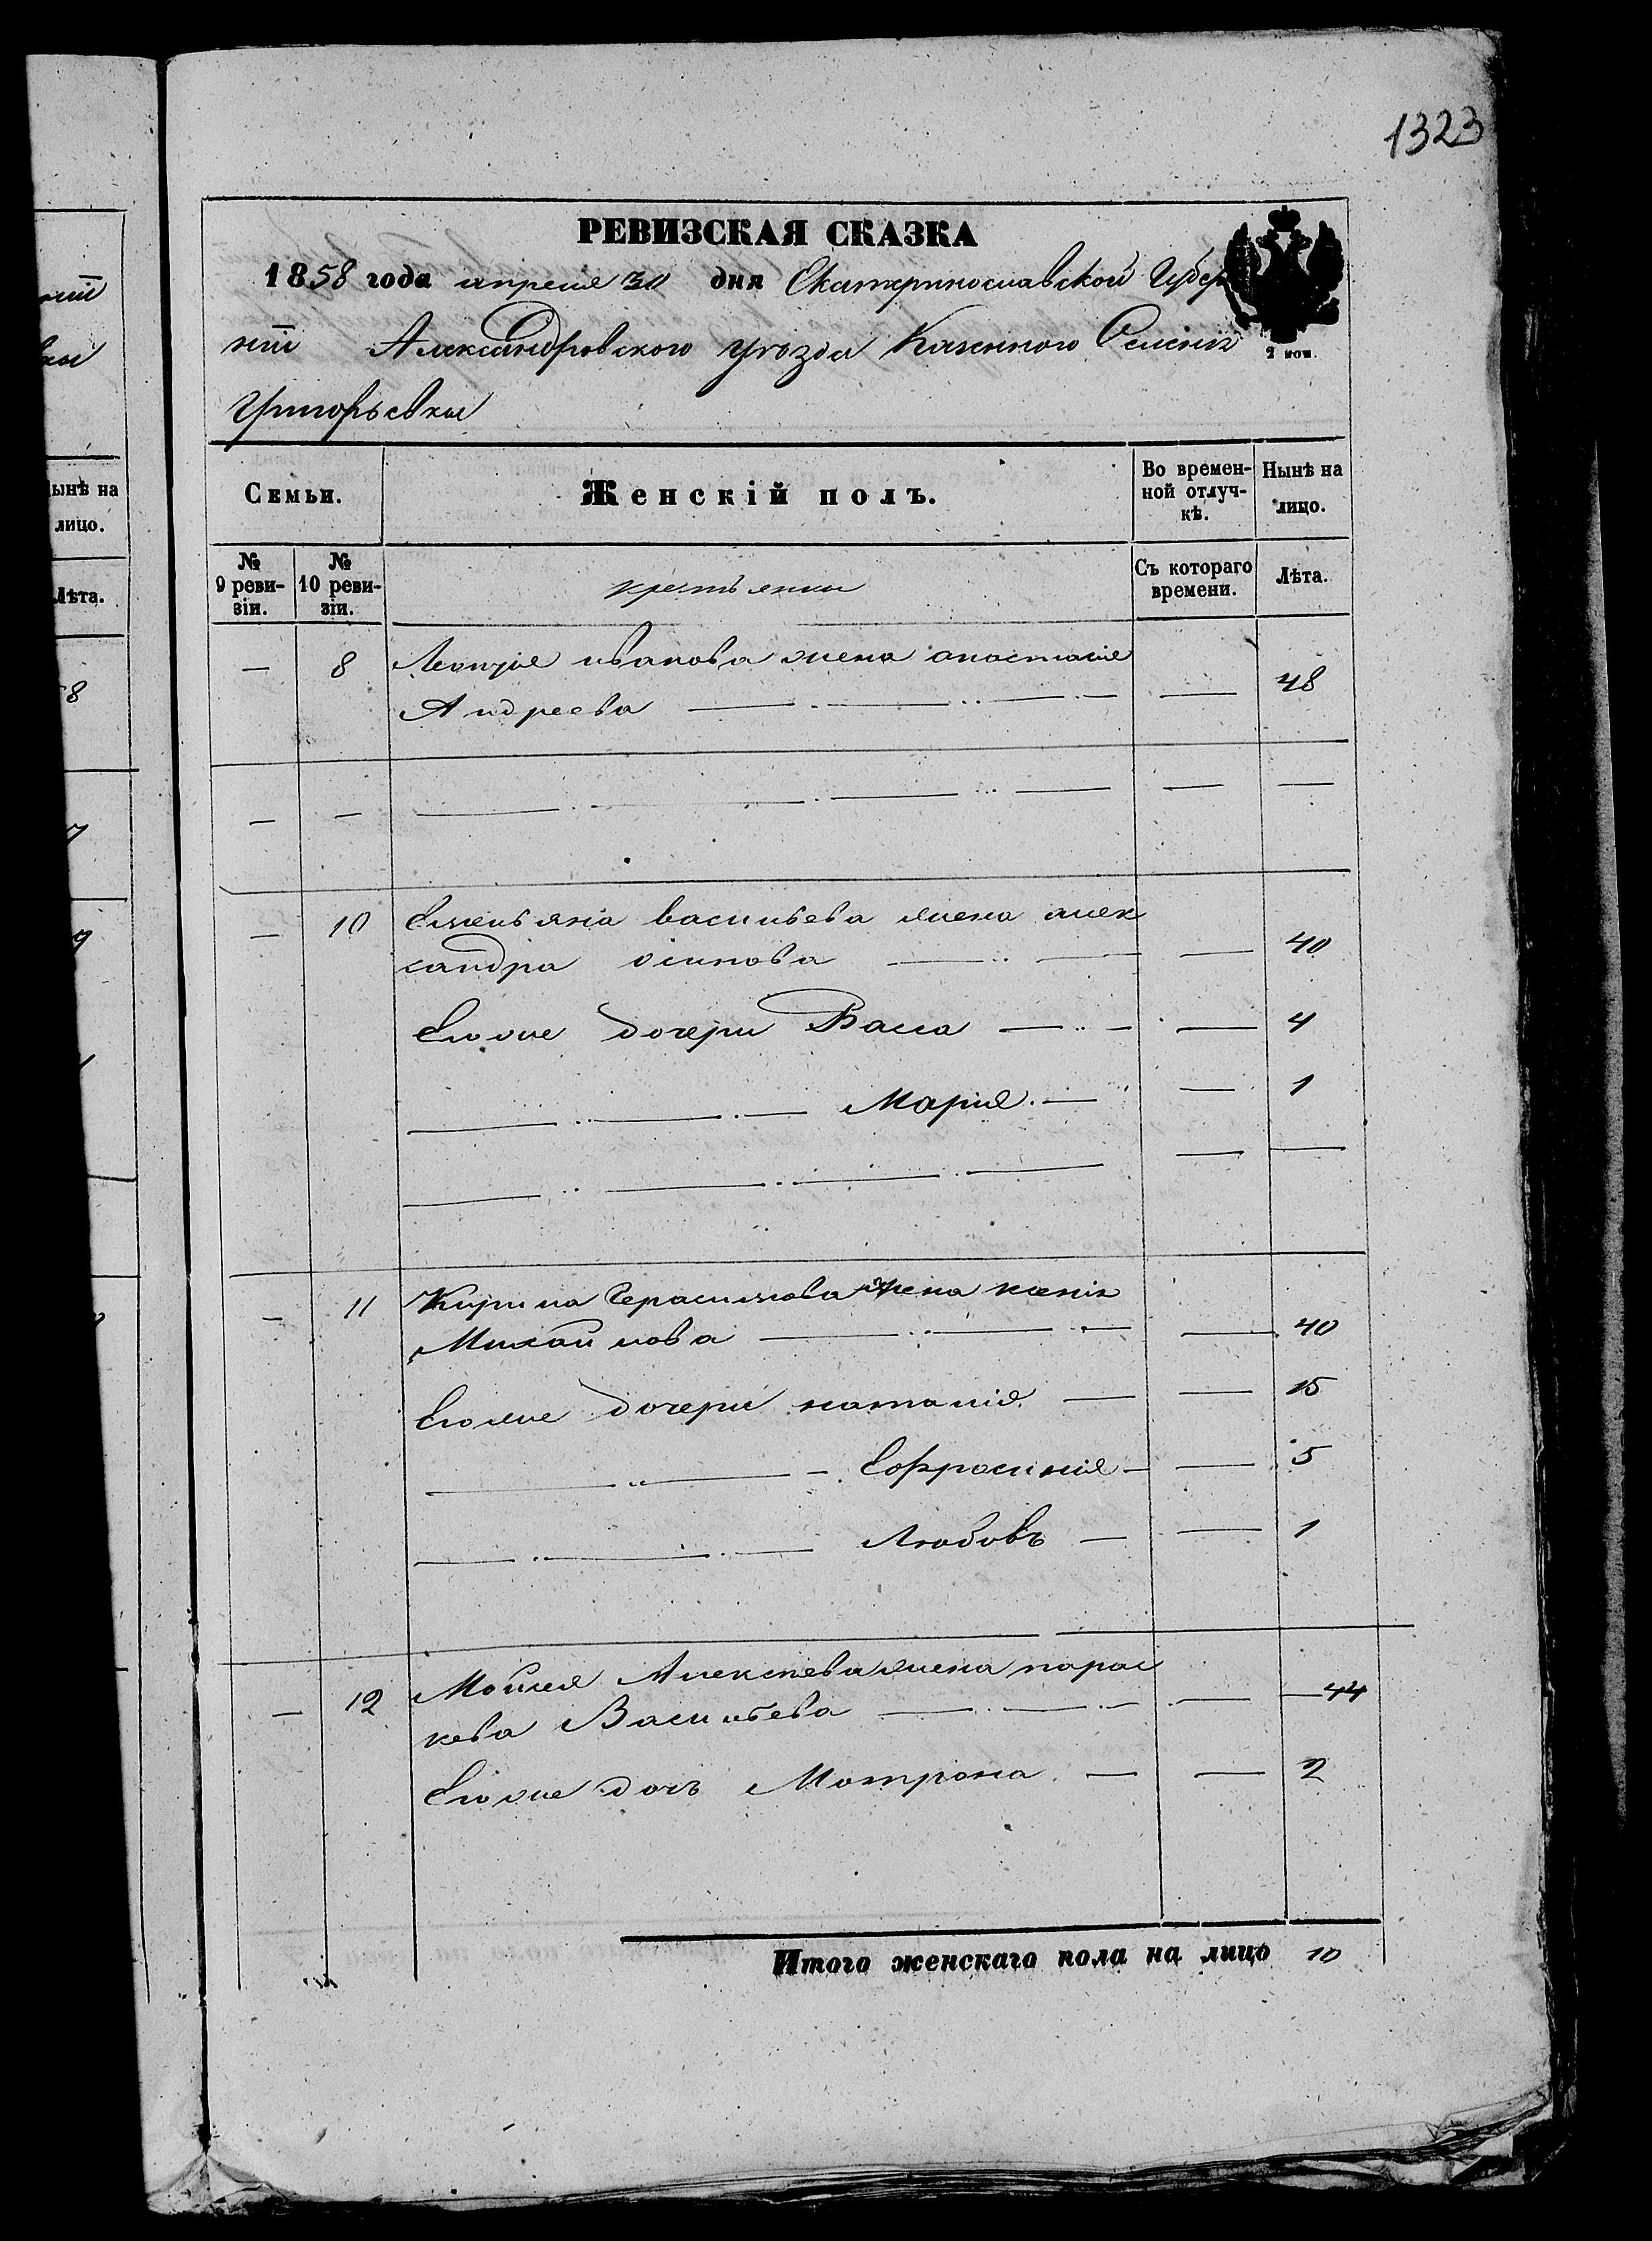 1323
РЕВИЗСКАЯ СКАЗКА
1858 года апреля 30 дня Екатеринославской Губер
ніи Александровского уезда Казенного Селенія
Григорьевки
Семьи.
Женскій полъ.
Во времен-
ной отлуч-
кѣ.
Нынѣ на
лицо.
№
9 реви-
зіи.
№
10 реви-
зіи.
крестьянки
Съ котораго
времени.
Лѣта.
— 8 Леонтія иванова жена анастасія
Андреева — 48
— 10 Емельяна васильева жена алек
сандра осипова — 40
Егоже дочери Васса — 4
Марія — 1
— 11 Кирила Герасимова жена ксенія
Михайлова — 40
Егоже дочери наталія — 15
Ефросинія — 5
Любовъ — 1
— 12 Мойсея Алексеева жена парас
кева Васильева — 44
Егоже дочь Мотрона — 2
Итого женскаго пола на лицо 10
ынѣ на
лицо.
Лѣта.
2 коп.